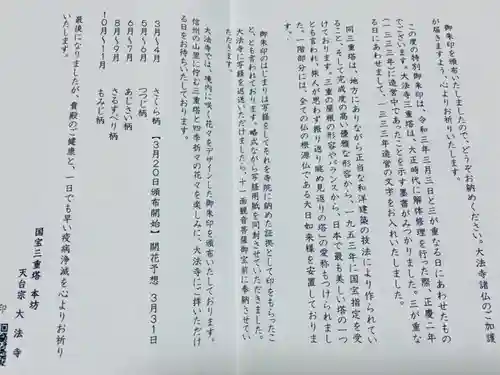 御朱印を頒布いたしましたので、どうぞお納めください。大法寺諸仏のご加護
が届きますよう、心よりお祈りいたします。
この度の特別御朱印は、令和三年三月三日と三が重なる日にあわせたもの
でございます。大法寺三重塔は、大正時代に解体修理を行った際、正慶二年
(一三三三年)に造営中であったことを示す墨書がみつかりました。三が重な
る日にあわせまして、一三三三年造営の文字をお入れいたしました。
同三重塔は、地方にありながら正当な和洋建築の技法により作られてい
ること、そして完成度の高い優雅な形容から、一九五三年に国宝指定を受
けております。三重の屋根の形容やバランスから、日本で最も美しい塔の一つ
とも言われ、旅人が思わず振り返り眺め「見返りの塔」の愛称もつけられまし
た。一階部分には、全ての仏の根源仏である大日如来様を安置しておりま
す。
御朱印のはじまりは写経をしてそれを寺院に納めた証拠として印をもらったこ
と、とも言われております。略式ながら写経用紙を同封させていただきました。
大法寺に写経を返送いただけましたら、十一面観音菩薩御宝前に奉納させてい
ただきます。
大法寺では、境内に咲く花々をデザインした御朱印を頒布いたしております。
信州の山里に佇む三重塔と四季折々の花々を楽しみに、大法寺にご拝いただけ
る日をお待ちいたしております。
3月〜4月 さくら柄 【3月20日頒布開始】 開花予想 3月31日
5月〜6月 つつじ柄
6月〜7月 あじさい柄
8月〜9月 さるすべり柄
10月〜11月 もみじ柄
最後になりましたが、貴殿のご健康と、一日でも早い疫病浄滅を心よりお祈り
いたします。
国宝三重塔 本坊
天台宗 大法寺
印